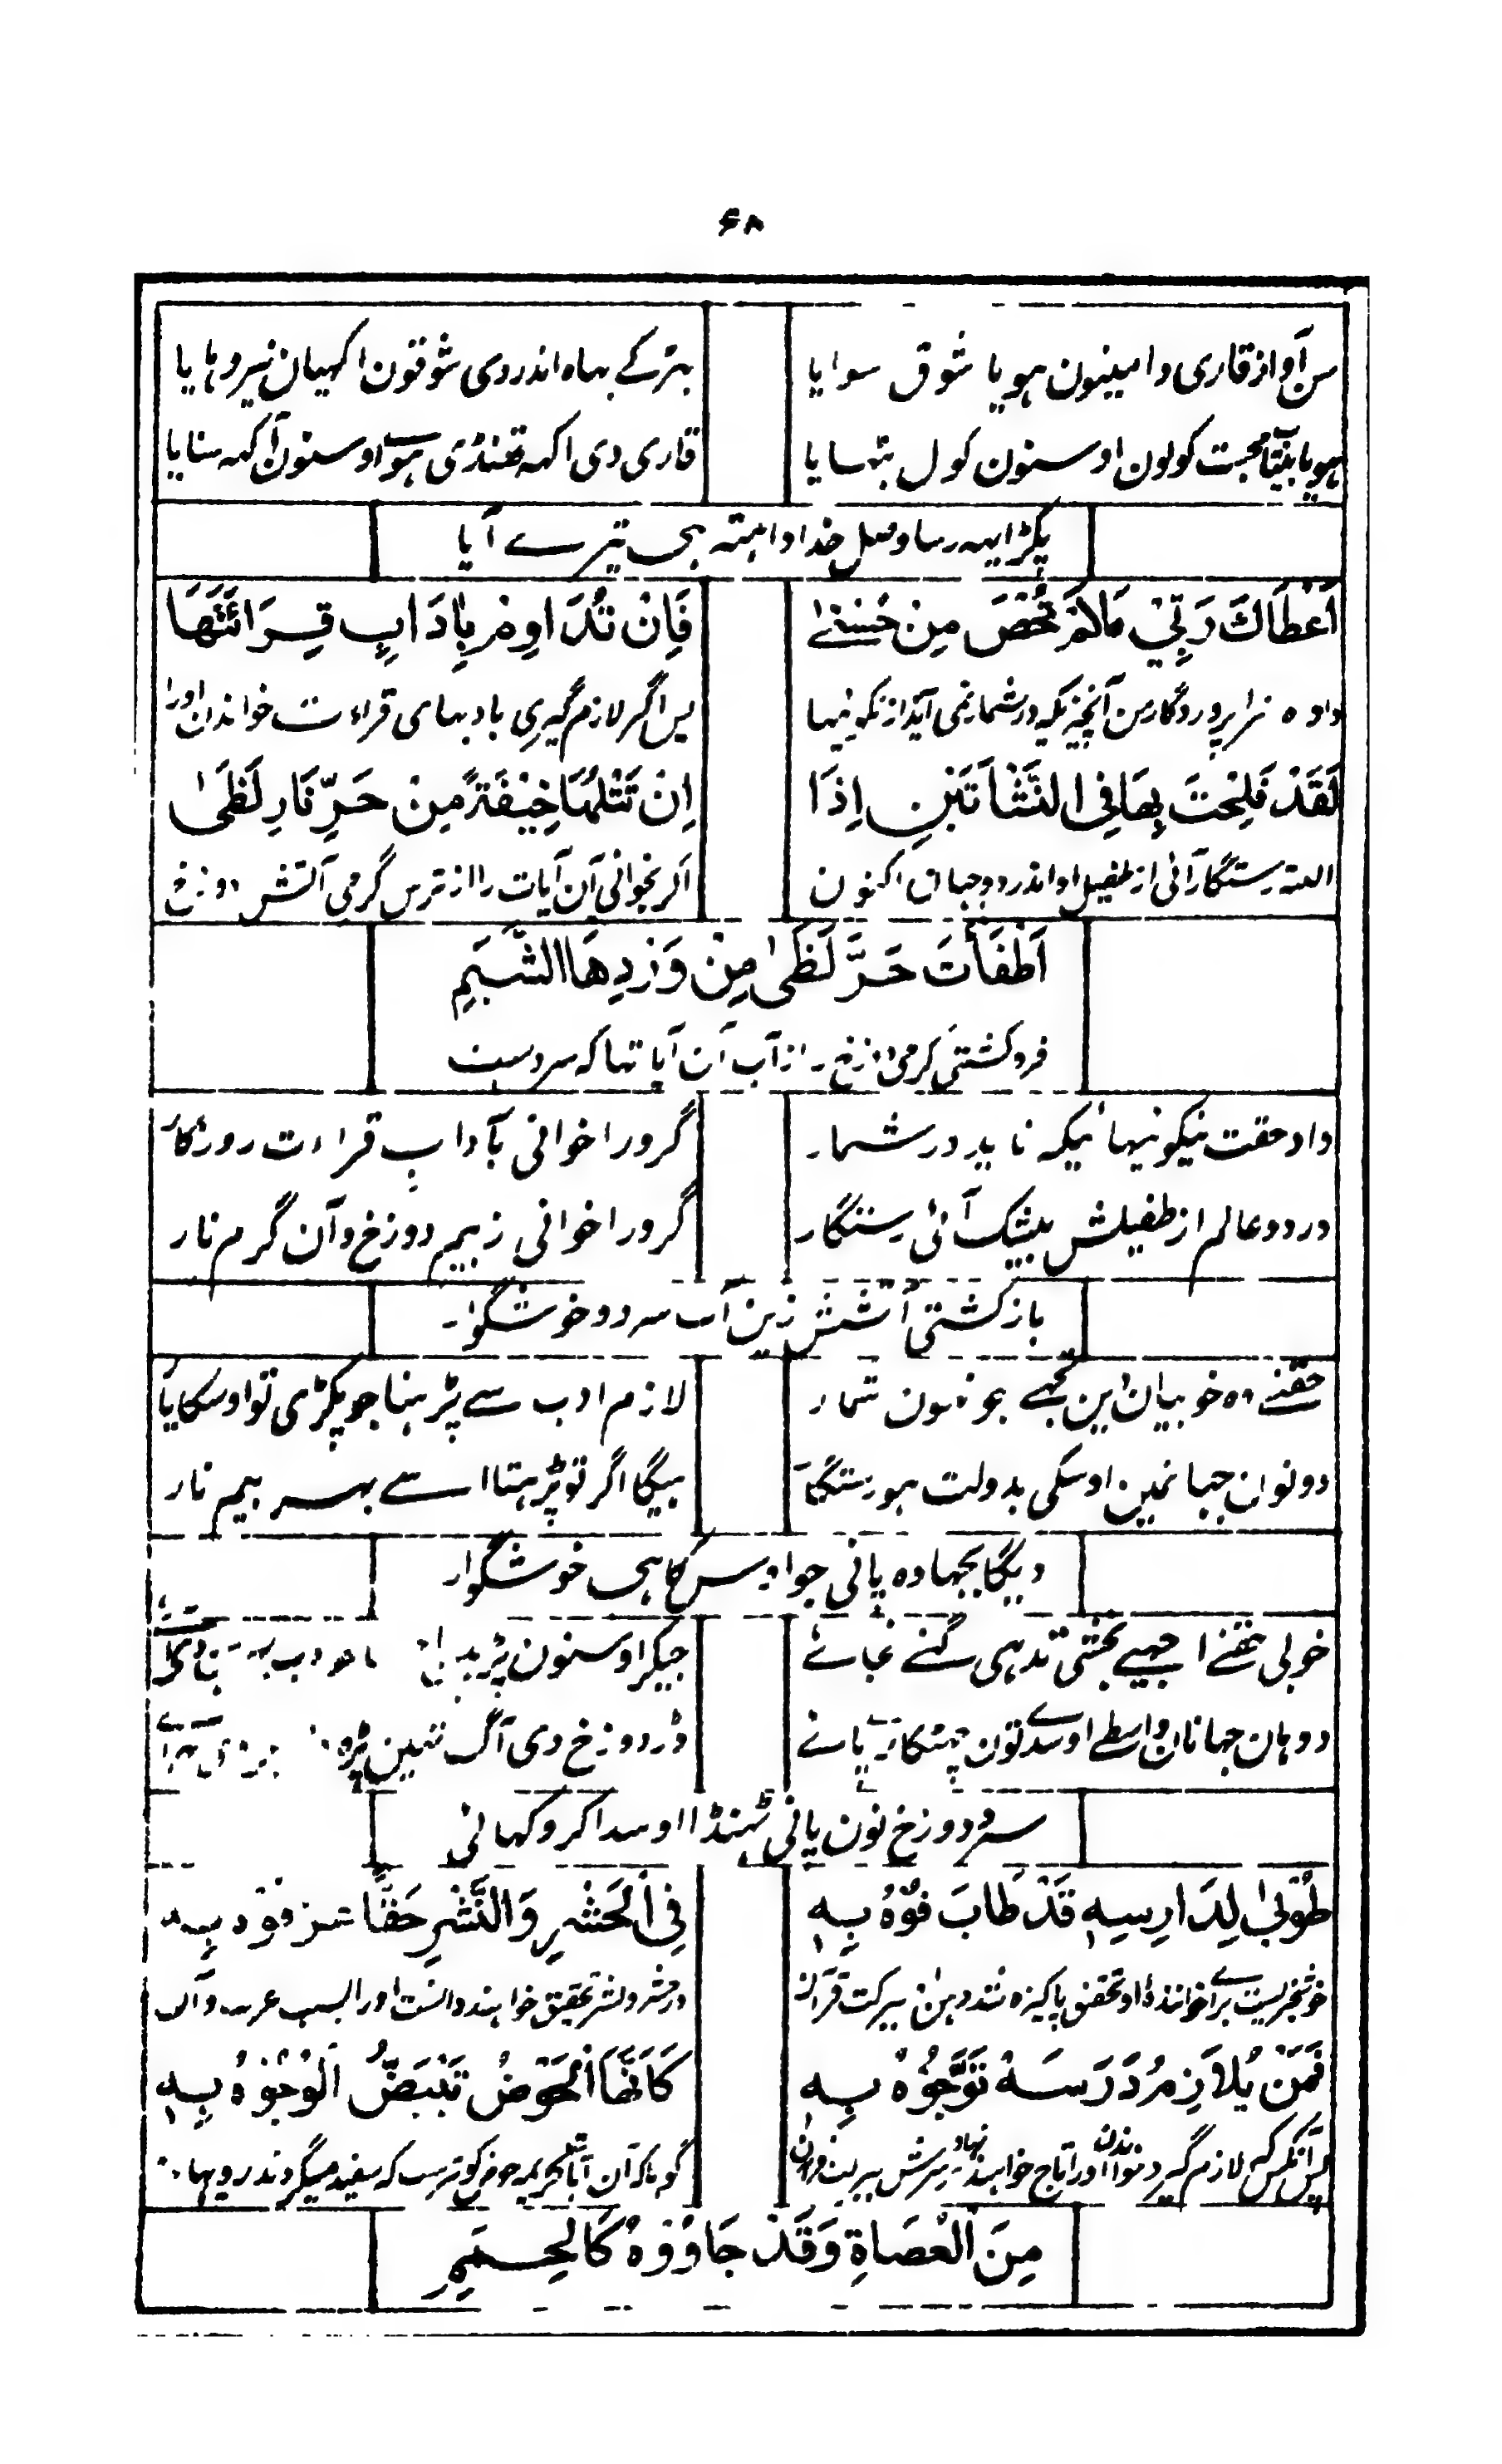 ۶۸
سن آواز قاری دا مینون ہویا شوق سوایا
بہڑکے بہاہ اندر دی شوقون اکہیان نیر وہایا
ہویا بیتاب محبت کولون اوسنون کول بتہایا
قاری دی اکہہ تھنڈی ہوے اوسنون آکہہ سنایا
پکڑا یہہ رسا وصل خدا دا ہتہ ہی تیرے آیا
اَعْطَاكَ رَبِّيْ مَالَمْ تُحْصَ مِنْ حُسْنٰے
فَاِنْ تُدَاوِمْ بِاٰدَابِ قِرَائَتَهَا
دادہ ترا پروردگار من آنچیزیکہ در شمار نمی آید از نکوئیہا
پس اگر لازم گیری بادبہای قراءت خواندن اورا
لَقَدْ فَلِحْتَ بِهَا فِي النَّشْاَتَيْنِ اِذَا
اِنْ تَتْلُهَا خِيْفَةً مِنْ حَرِّ نَارِ لَظَىٰ
البتہ رستگار آئی از طفیل او اندر دو جہان اکنون
اگر بخوانی آن آیات را از ترس گرمی آتش دوزخ
اَطْفَأْتَ حَرَّ لَظَىٰ مِنْ وَرْدِهَا الشَّبِمِ
فرو کشتی گرمی دوزخ را از آب آن آیاتہا کہ سردست
داد حقت نیکوئیہائیکہ ناید در شمار
گرورا خوانی بآداب قراءت روزگار
در دو عالم از طفیلش بیشک آئی رستگار
گرورا خوانی زبیم دوزخ و آن گرم نار
باز کشتی آتشش زین آب سرد و خوشگوار
حقنے وہ خوبیان این تجہے جو نہون شمار
لازم ادب سے پڑہنا جو پکڑی تو اوسکا یا
دونوان جہانمین اوسکی بدولت ہو رستگار
ہیگا اگر تو پڑہتا اسے بہر بیم نار
دیگا بجہا وہ پانی جو اوس کا ہی خوشگوار
خوبی حقنے اجہیے بخشی تدہی گنے نجائے
جیکر اوسنون پڑہدا
دوہان جہانان واسطے اوسدے تون چہٹکارے پائے
ڈر دوزخ دی آگ تہین پڑہ
سرد دوزخ نون پانی ٹہنڈا اوسدا کر وکہائی
طُوْبٰى لِدَارِسِهٖ قَدْ طَابَ فُوْهُ بِهٖ
فِي الْحَشْرِ وَالنَّشْرِ حَقًّا بِهٖ
خوشخبریست برای خوانندہ او تحقیق پاکیزہ شد دہن ببرکت قرآن
در حشر و نشر تحقیق خواہند دانست اورا بسبب
فَمَنْ يُلَازِمْ دَرَسَهْ تَوَّجُوْهُ بِهٖ
كَاَنَّهَا الْحَوْضُ تَبْيَضُّ الْوُجُوْهُ بِهٖ
پس آنکس کہ لازم گیرد خواندن اورا تاج خواہند نہاد بر سرش
گویا کہ آن آیات کریمہ حوض کوثرست کہ سفید میگردند رویہا
مِنَ الْعُصَاةِ وَقَدْ جَاؤُوْهُ كَالْحِمَمِ